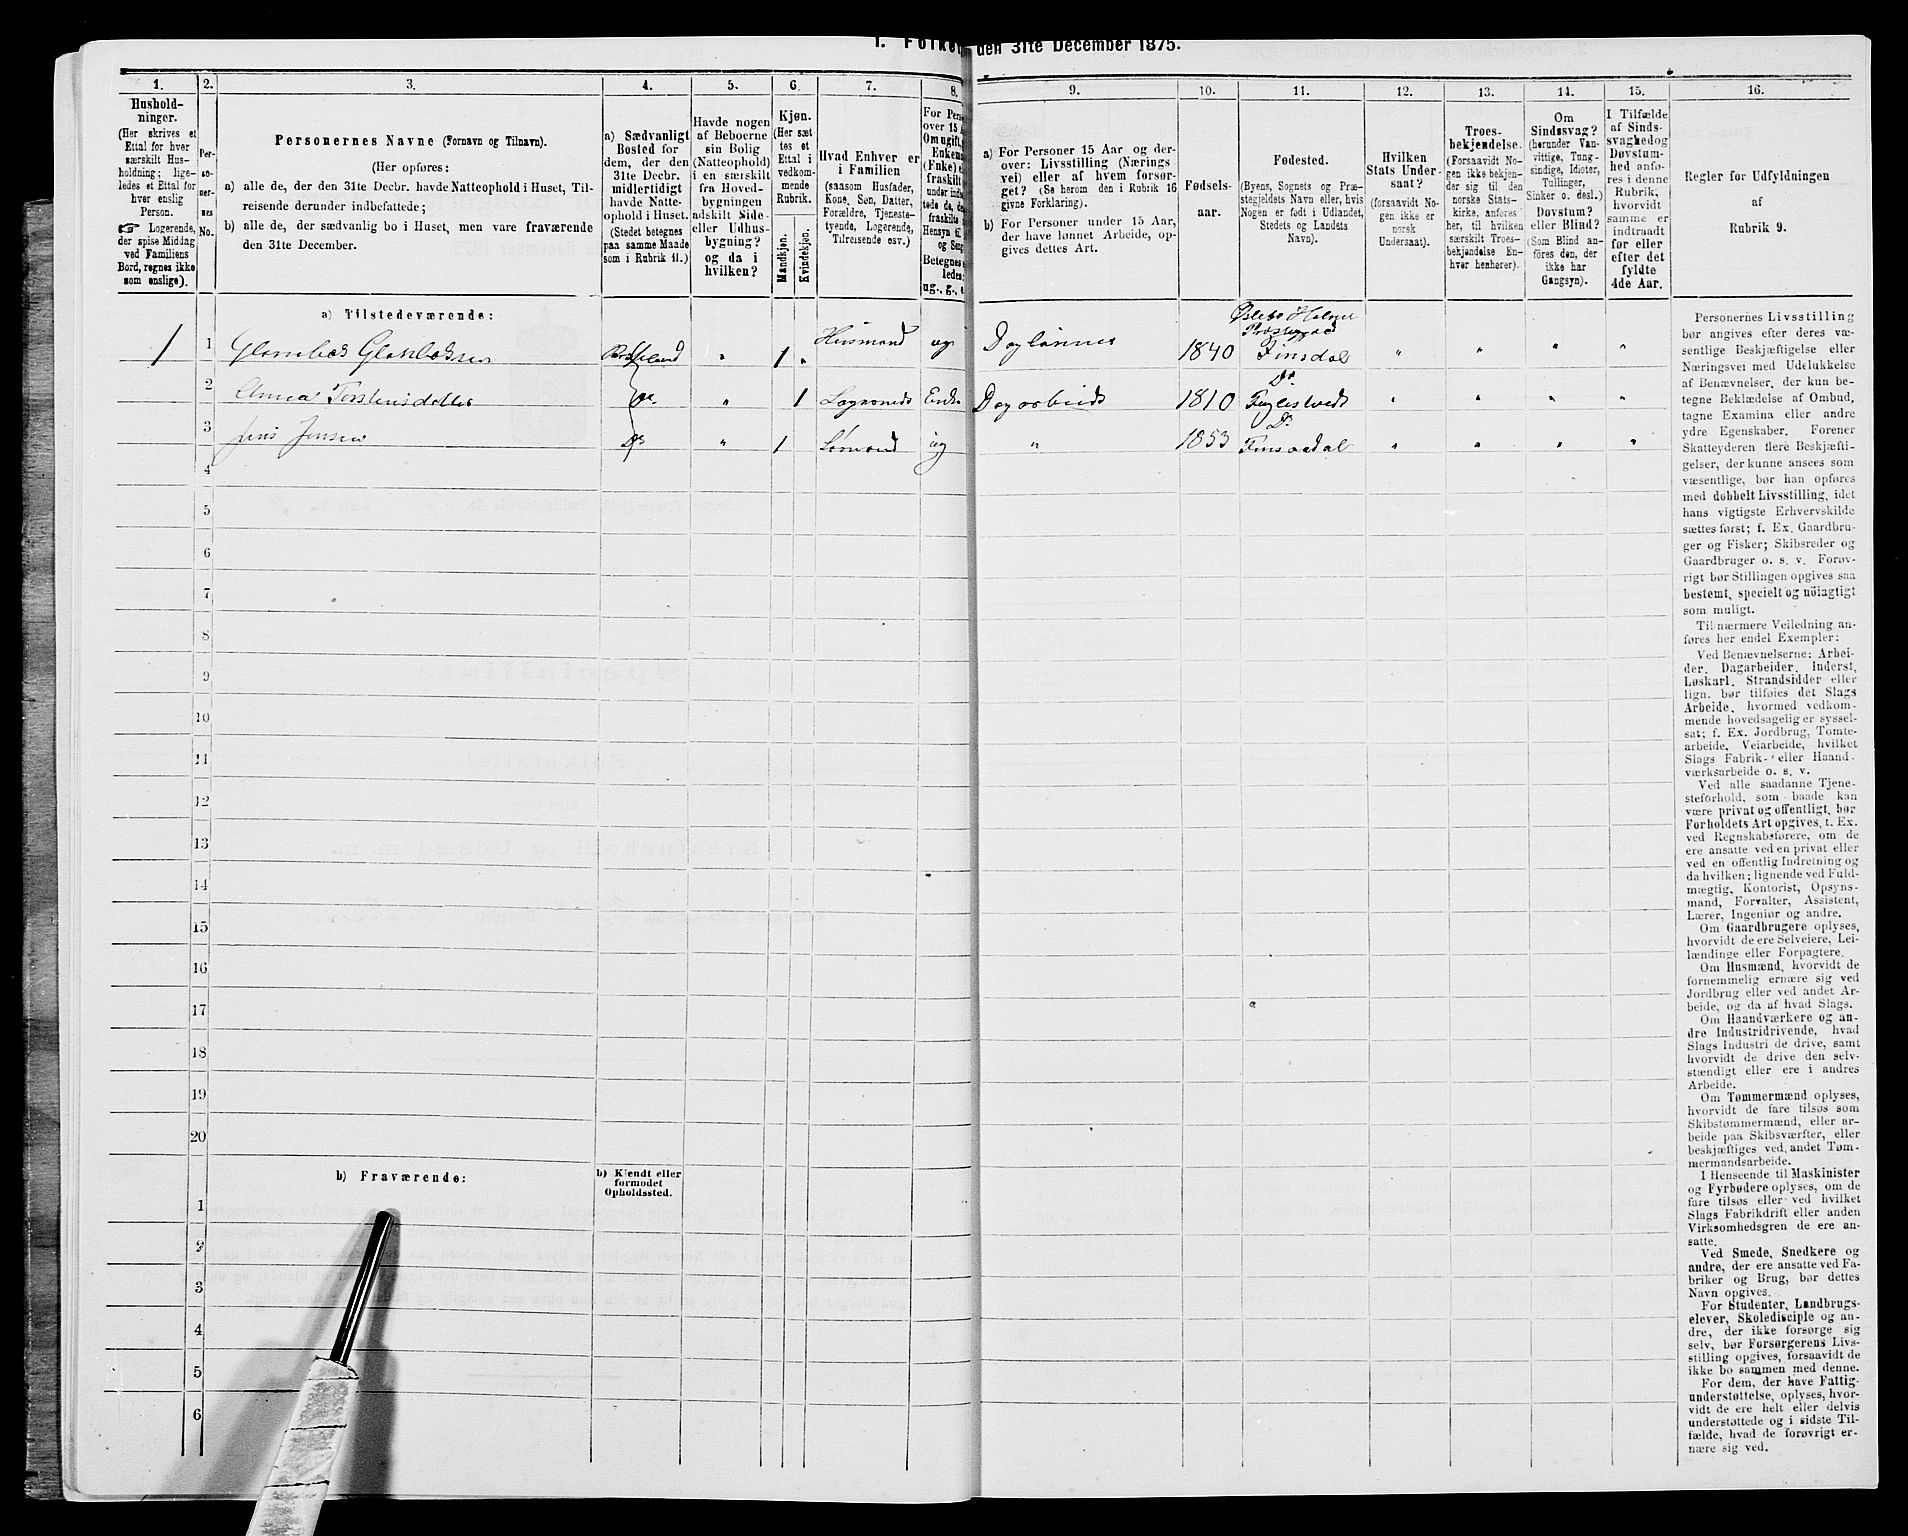 1. Folket den 31te December 1875.
1. 2. 3. 4. 5. 6. 7. 8. 9. 10. 11. 12. 13. 14. 15. 16.
Hushold-
ninger.
(Her skrives et
Ettal for hver
særskilt Hus-
holdning; lige-
ledes et Ettal for
hver enslig
Person.
Logerende,
der spise Middag
ved Familiens
Bord, regnes ikke
som enslige).
Per-
so-
ner-
nes
No.
Personernes Navne (Fornavn og Tilnavn).
(Her opføres:
a) alle de, der den 31te Decbr. havde Natteophold i Huset, Til-
reisende derunder indbefattede;
b) alle de, der sædvanlig bo i Huset, men vare fraværende
den 31te December.
a) Sædvanligt
Bosted for
dem, der den
31te Decbr.
midlertidigt
havde Natte-
ophold i Huset.
(Stedet betegnes
paa samme Maade
som i Rubrik 11.)
Havde nogen
af Beboerne
sin Bolig
(Natteophold)
i en særskilt
fra Hoved-
bygningen
adskilt Side-
eller Udhus-
bygning?
og da i
hvilken?
Kjøn.
(Her sæt
tes et
Ettal i
vedkom-
mende
Rubrik.
Mandkjøn.
Kvindekjøn.
Hvad Enhver er
i Familien
(saasom Husfader,
Kone, Søn, Datter,
Forældre, Tjeneste-
tyende, Logerende,
Tilreisende osv.)
For Pers
over 15 A
Om ugift,
Enkem
(Enke) e
fraskilt
under ind
tede de,
fraskilte
Hensyn ti
og Sen
Betegnes
ledes
ug., g., e
a) For Personer 15 Aar og der-
over: Livsstilling (Nærings
vei) eller af hvem forsør-
get? (Se herom den i Rubrik 16
givne Forklaring).
b) For Personer under 15 Aar,
der have lønnet Arbeide, op-
gives dettes Art.
Fødsels-
aar.
Fødested.
(Byens, Sognets og Præ-
stegjeldets Navn eller, hvis
Nogen er født i Udlandet,
Stedets og Landets
Navn).
Hvilken
Stats Under-
saat?
(forsaavidt No-
gen ikke er
norsk
Undersaat).
Troes-
bekjendelse.
(Forsaavidt No-
gen ikke bekjen-
der sig til den
norske Stats-
kirke, anføres
her, til hvilken
særskilt Troes-
bekjendelse En-
hver henhører).
Om
Sindssvag?
(herunder Van-
vittige, Tung-
sindige, Idioter,
Tullinger,
Sinker o. desl.)
Døvstum?
eller Blind?
(Som Blind an-
føres den, der
ikke har
Gangsyn).
I Tilfælde
af Sinds-
svaghed og
Døvstum-
hed anfø-
res i denne
Rubrik,
hvorvidt
samme er
indtraadt
før eller
efter det
fyldte
4de Aar.
Regler for Udfyldningen
af
Rubrik 9.
a) Tilstedeværende:
Øslebø Halsaa
Præstegjæld
1 1 " 1 " Husmand ug Daglønner 1840 Finsdal " " " "
Do
2 Anna Torstensdatter Do " 1 Logerende Enke Dagarbeide 1810 Fuglestvedt " " " "
Do
3 Jens Jensen Do " 1 Lømand ug " 1853 Finsaadal " " " "
4
5
6
7
8
9
10
11
12
13
14
15
16
17
18
19
20
b) Fraværende:
b) Kjendt eller
formodet
Opholdssted.
1
2
3
4
5
6
Personernes Livsstilling
bør angives efter deres væ-
sentlige Beskjæftigelse eller
Næringsvei med Udelukkelse
af Benævnelser, der kun be-
tegne Beklædelse af Ombud,
tagne Examina eller andre
ydre Egenskaber. Forener
Skatteyderen flere Beskjæfti-
gelser, der kunne ansees som
væsentlige, bør han opføres
med dobbelt Livsstilling, idet
hans vigtigste Erhvervskilde
sættes først; f. Ex. Gaardbru-
ger og Fisker; Skibsreder og
Gaardbruger o. s. v. Forøv-
rigt bør Stillingen opgives saa
bestemt, specielt og nöiagtigt
som muligt.
Til nærmere Veiledning an-
føres her endel Exempler:
Ved Benævnelserne: Arbei-
der, Dagarbeider, Inderst,
Løskarl, Strandsidder eller
lign. bør tilføies det Slags
Arbeide, hvormed vedkom-
mende hovedsagelig er syssel-
sat; f. Ex. Jordbrug, Tomte-
arbeide, Veiarbeide, hvilket
Slags Fabrik- eller Haand-
værksarbeide o. s. v.
Ved alle saadanne Tjene-
steforhold, som baade kan
være privat og offentligt, bør
Forholdets Art opgives, t. Ex.
ved Regnskabsførere, om de
ere ansatte ved en privat eller
ved en offentlig Indretning og
da hvilken; lignende ved Fuld-
mægtig, Kontorist, Opsyns-
mand, Forvalter, Assistent,
Lærer, Ingeniør og andre.
Om Gaardbrugere oplyses,
hvorvidt de ere Selveiere, Lei-
lændinge eller Forpagtere.
Om Husmænd, hvorvidt de
fornemmelig ernære sig ved
Jordbrug eller ved andet Ar-
beide, og da af hvad Slags.
Om Haandværkere og an-
dre Industridrivende, hvad
Slags Industri de drive, samt
hvorvidt de drive den selv-
stændigt eller ere i andres
Arbeide.
Om Tømmermænd oplyses,
hvorvidt de fare tilsøs som
Skibstømmermænd, eller ar-
beide paa Skibsværfter, eller
beskjæftiges ved andet Tøm-
mermandsarbeide.
I Henseende til Maskinister
og Fyrbødere oplyses, om de
fare tilsøs eller ved hvilket
Slags Fabrikdrift eller anden
Virksomhedsgren de ere an-
satte.
Ved Smede, Snedkere og
andre, der ere ansatte ved Fa-
briker og Brug, bør dettes
Navn opgives.
For Studenter, Landbrugs-
elever, Skoledisciple og an-
dre, der ikke forsørge sig
selv, bør Forsørgerens Livs-
stilling opgives, forsaavidt de
ikke bo sammen med denne.
For dem, der have Fattig-
understøttelse, oplyses, hvor-
vidt de ere helt eller delvis
understøttede og i sidste Til-
fælde, hvad de forøvrigt er-
nære sig ved.